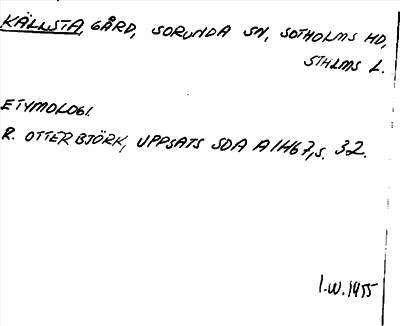 KÄLLSTA, GÅRD, SORUNDA SN, SOTHOLMS HD,
STHLMS L.
ETYMOLOGI.
R. OTTERBJÖRK, UPPSATS SDA A 1467, S. 32.
I.W. 1955